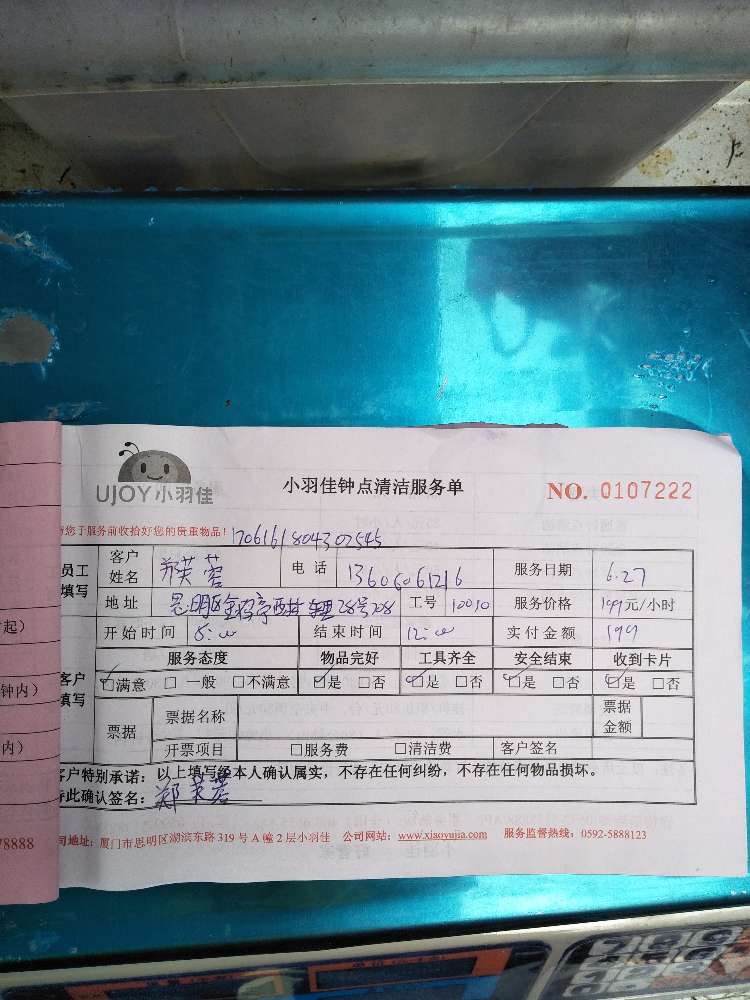 UJOY小羽佳
小羽佳钟点清洁服务单
NO. 0107222
您于服务前收拾好您的贵重物品!
170616180430 2545
员工填写 客户姓名 郑芙蓉 电话 13606061216 服务日期 6.27
起) 地址 思明区 28号208 工号 10010 服务价格 199元/小时
开始时间 8:00 结束时间 12:00 实付金额 199
服务态度 物品完好 工具齐全 安全结束 收到卡片
钟内) 客户填写 ☑满意 □一般 □不满意 ☑是 □否 ☑是 □否 ☑是 □否 ☑是 □否
票据 票据名称 票据金额
内) 开票项目 □服务费 □清洁费 客户签名
客户特别承诺: 以上填写经本人确认属实,不存在任何纠纷,不存在任何物品损坏。
此确认签名: 郑芙蓉
78888 司地址: 厦门市思明区湖滨东路319号A幢2层小羽佳 公司网站: www.xiaoyujia.com 服务监督热线: 0592-5888123